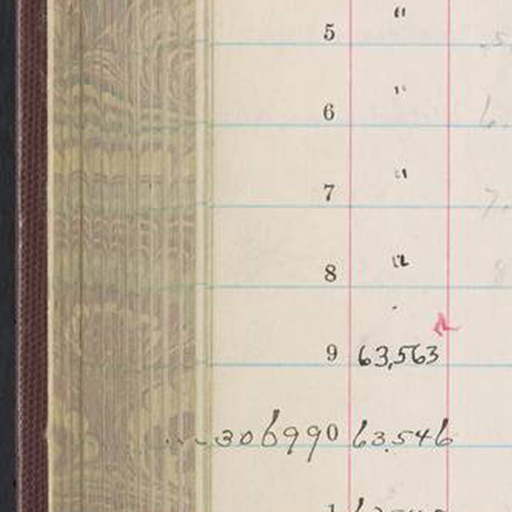 5 "
6 "
7 "
8 "
9 63,563
306990 63.546
1